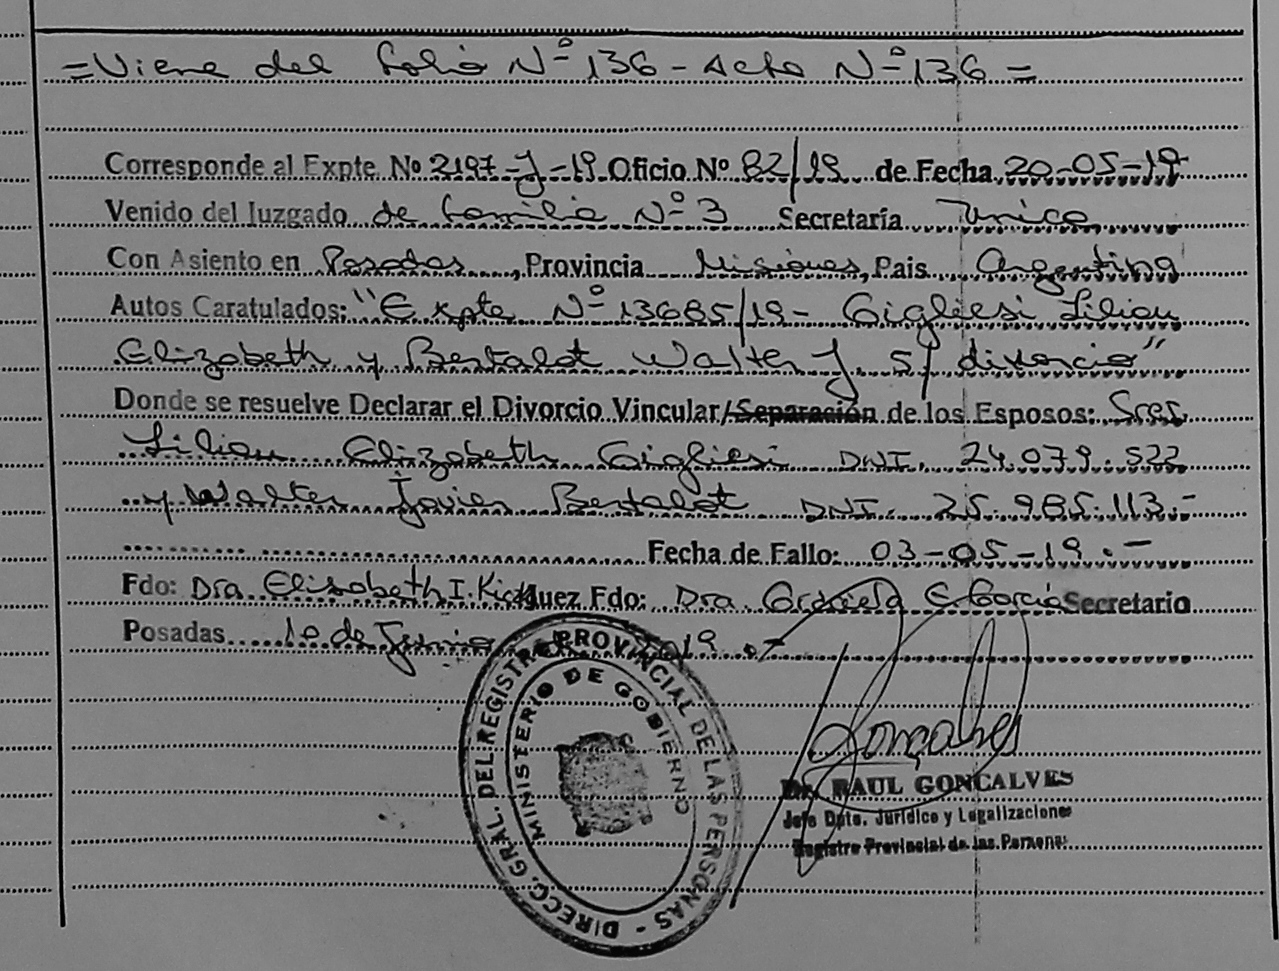 =Viene del folio Nº 136 - Acta Nº 136 =
Corresponde al Expte. Nº 2197-J-19 Oficio Nº 82/19 de Fecha 20-05-19
Venido del Juzgado de familia Nº 3 Secretaría Unica
Con Asiento en Posadas, Provincia Misiones, Pais Argentina
Autos Caratulados: "Expte Nº 13685/19- Gigliesi Lilian
Elizabeth y Bertalot Walter J. s/ divorcio"
Donde se resuelve Declarar el Divorcio Vincular/Separación de los Esposos: Sres.
Lilian Elizabeth Gigliesi DNI. 24.079.522
y Walter Javier Bertalot DNI. 25.985.113.-
Fecha de Fallo: 03-05-19.-
Fdo: Dra Elisabeth I. Juez Fdo: Dra Graciela E. Garcia Secretario
Posadas 10 de Junio 2019.-
DIRECC. GRAL. DEL REGISTRO PROVINCIAL DE LAS PERSONAS -
MINISTERIO DE GOBIERNO
Dr. RAUL GONCALVES
Jefe Dpto. Jurídico y Legalizaciones
Registro Provincial de las Personas